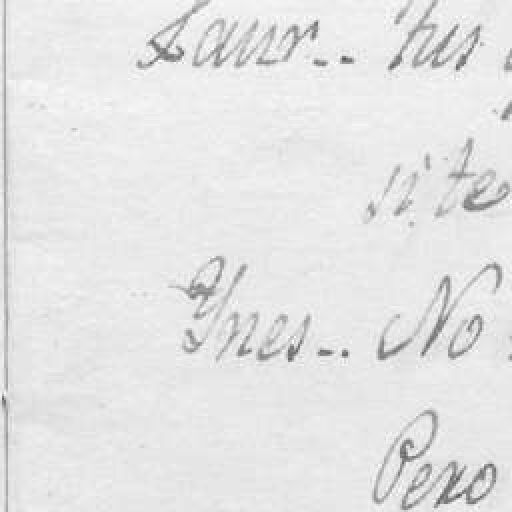 Laur.. tus
si te
Ynes.. No
Pero